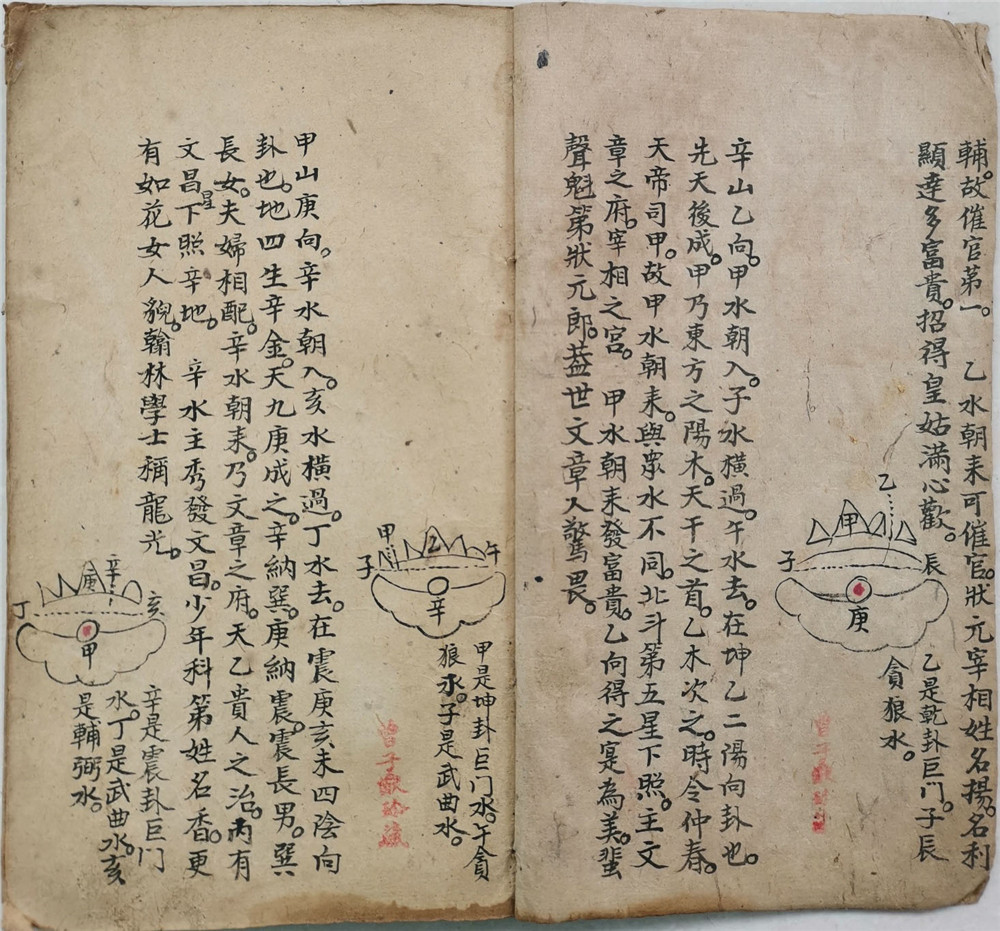 輔。故催官第一。　乙水朝来可催官。狀元宰相姓名揚。名利
顯達多富貴。招得皇姑滿心歡。
乙
甲
子
辰
庚
乙是乾卦巨門。子辰
貪狼水。
辛山乙向。甲水朝入。子水橫過。午水去。在坤乙二陽向卦也。
先天後成。甲乃東方之陽木。天干之首。乙木次之。時令仲春。
天帝司甲。故甲水朝来。與衆水不同。北斗第五星下照。主文
章之府。宰相之宮。　甲水朝来發富貴。乙向得之寔為美。蜚
聲魁第狀元郎。蓋世文章人驚畏。
甲
乙
午
子
辛
甲是坤卦巨門水。午貪
狼水。子是武曲水。
甲山庚向。辛水朝入。亥水橫過。丁水去。在震庚亥未四陰向
卦也。地四生辛金。天九庚成之。辛納巽。庚納震。震長男。巽
長女。夫婦相配。辛水朝来。乃文章之府。天乙貴人之治。丙有
文昌星下照辛地。　辛水主秀發文昌。少年科第姓名香。更
有如花女人貌。翰林學士稱龍光。
辛
丁
亥
甲
辛是震卦巨門
水。丁是武曲水。亥
是輔弼水。